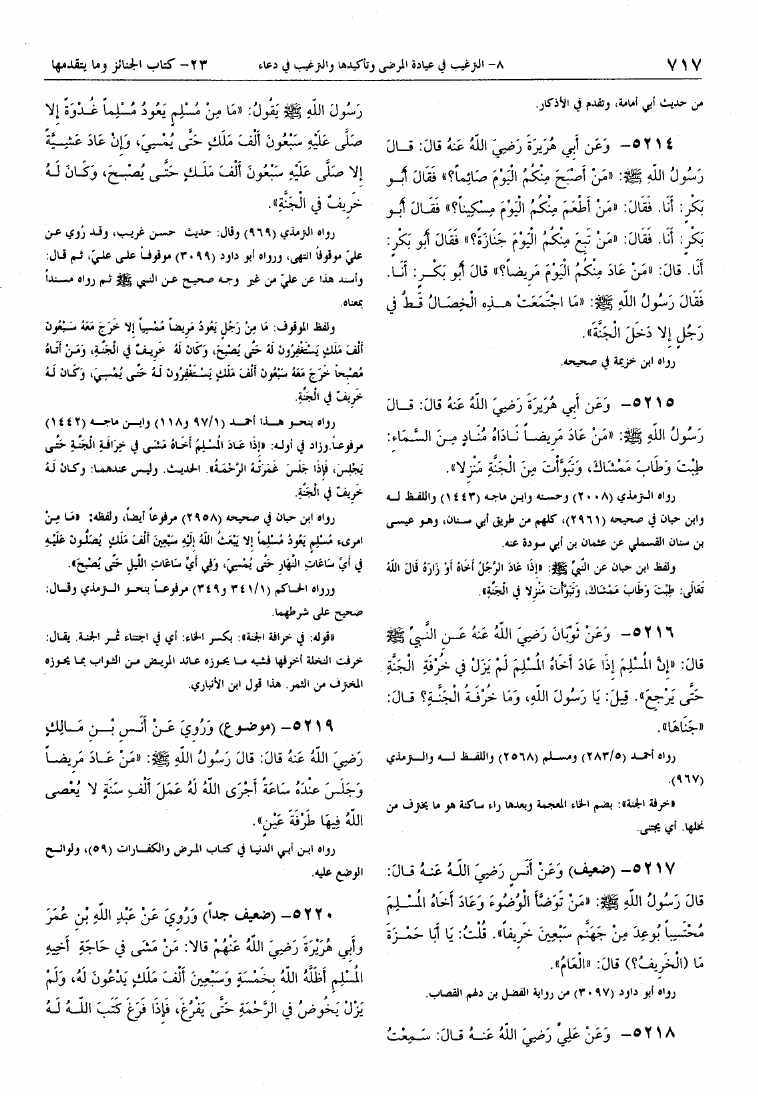 ٧١٧
٨- الترغيب في عيادة المرضى وتأكيدها والترغيب في دعاء
٢٣- كتاب الجنائز وما يتقدمها
من حديث أبي أمامة، وتقدم في الأذكار.
٥٢١٤- وَعَن أَبِي هُرَيْرَةَ رَضِيَ اللَّهُ عَنْهُ قَالَ: قَالَ
رَسُولُ اللَّهِ ﷺ: «مَنْ أَصْبَحَ مِنْكُمُ الْيَوْمَ صَائِماً؟» فَقَالَ أَبُو
بَكْرٍ: أَنَا. فَقَالَ: «مَنْ أَطْعَمَ مِنْكُمُ الْيَوْمَ مِسْكِيناً؟» فَقَالَ أَبُو
بَكْرٍ: أَنَا. قَالَ: «مَنْ تَبِعَ مِنْكُمُ الْيَوْمَ جَنَازَةً؟» فَقَالَ أَبُو بَكْرٍ:
أَنَا. قَالَ: «مَنْ عَادَ مِنْكُمُ الْيَوْمَ مَرِيضاً؟» قَالَ أَبُو بَكْرٍ: أَنَا.
فَقَالَ رَسُولُ اللَّهِ ﷺ: «مَا اجْتَمَعَتْ هَذِهِ الْخِصَالُ قَطُّ فِي
رَجُلٍ إِلا دَخَلَ الْجَنَّةَ».
رواه ابن خزيمة في صحيحه.
٥٢١٥- وَعَن أَبِي هُرَيْرَةَ رَضِيَ اللَّهُ عَنْهُ قَالَ: قَالَ
رَسُولُ اللَّهِ ﷺ: «مَنْ عَادَ مَرِيضاً نَادَاهُ مُنَادٍ مِنَ السَّمَاءِ:
طِبْتَ وَطَابَ مَمْشَاكَ، وَتَبَوَّأْتَ مِنَ الْجَنَّةِ مَنْزِلا».
رواه الترمذي (٢٠٠٨) وحسنه وابن ماجه (١٤٤٣) واللفظ له
وابن حبان في صحيحه (٢٩٦١)، كلهم من طريق أبي سنان، وهو عيسى
بن سنان القسملي عن عثمان بن أبي سودة عنه.
ولفظ ابن حبان عن النَّبِيِّ ﷺ: «إِذَا عَادَ الرَّجُلُ أَخَاهُ أَوْ زَارَهُ قَالَ اللَّهُ
تَعَالَى: طِبْتَ وَطَابَ مَمْشَاكَ، وَتَبَوَّأْتَ مَنْزِلا فِي الْجَنَّةِ».
٥٢١٦- وَعَنْ ثَوْبَانَ رَضِيَ اللَّهُ عَنْهُ عَنِ النَّبِيِّ ﷺ
قَالَ: «إِنَّ الْمُسْلِمَ إِذَا عَادَ أَخَاهُ الْمُسْلِمَ لَمْ يَزَلْ فِي خُرْفَةِ الْجَنَّةِ
حَتَّى يَرْجِعَ». قِيلَ: يَا رَسُولَ اللَّهِ، وَمَا خُرْفَةُ الْجَنَّةِ؟ قَالَ:
«جَنَاهَا».
رواه أحمد (٢٨٣/٥) ومسلم (٢٥٦٨) واللفظ له والترمذي
(٩٦٧).
«خرفة الجنة»: بضم الخاء المعجمة وبعدها راء ساكنة هو ما يخترف من
نخلها. أي يجتنى.
٥٢١٧- (ضعيف) وَعَنْ أَنَسٍ رَضِيَ اللَّهُ عَنْهُ قَالَ:
قَالَ رَسُولُ اللَّهِ ﷺ: «مَنْ تَوَضَّأَ الْوُضُوءَ وَعَادَ أَخَاهُ الْمُسْلِمَ
مُحْتَسِباً بُوعِدَ مِنْ جَهَنَّمَ سَبْعِينَ خَرِيفاً». قُلْتُ: يَا أَبَا حَمْزَةَ
مَا (الْخَرِيفُ؟) قَالَ: «الْعَامُ».
رواه أبو داود (٣٠٩٧) من رواية الفضل بن دلهم القصاب.
٥٢١٨- وَعَنْ عَلِيٍّ رَضِيَ اللَّهُ عَنْهُ قَالَ: سَمِعْتُ
رَسُولَ اللَّهِ ﷺ يَقُولُ: «مَا مِنْ مُسْلِمٍ يَعُودُ مُسْلِماً غُدْوَةً إِلا
صَلَّى عَلَيْهِ سَبْعُونَ أَلْفَ مَلَكٍ حَتَّى يُمْسِيَ، وَإِنْ عَادَ عَشِيَّةً
إِلا صَلَّى عَلَيْهِ سَبْعُونَ أَلْفَ مَلَكٍ حَتَّى يُصْبِحَ، وَكَانَ لَهُ
خَرِيفٌ فِي الْجَنَّةِ».
رواه الترمذي (٩٦٩) وقال: حديث حسن غريب، وقد رُوي عن
عليّ موقوفاً انتهى، ورواه أبو داود (٣٠٩٩) موقوفاً على عليّ، ثم قال:
وأسند هذا عن عليّ من غير وجه صحيح عن النبي ﷺ ثم رواه مسنداً
بمعناه.
ولفظ الموقوف: مَا مِنْ رَجُلٍ يَعُودُ مَرِيضاً مُمْسِياً إِلا خَرَجَ مَعَهُ سَبْعُونَ
أَلْفَ مَلَكٍ يَسْتَغْفِرُونَ لَهُ حَتَّى يُصْبِحَ، وَكَانَ لَهُ خَرِيفٌ فِي الْجَنَّةِ، وَمَنْ أَتَاهُ
مُصْبِحاً خَرَجَ مَعَهُ سَبْعُونَ أَلْفَ مَلَكٍ يَسْتَغْفِرُونَ لَهُ حَتَّى يُمْسِيَ، وَكَانَ لَهُ
خَرِيفٌ فِي الْجَنَّةِ.
رواه بنحو هذا أحمد (٩٧/١ و١١٨) وابن ماجه (١٤٤٢)
مرفوعاً. وزاد في أوله: «إِذَا عَادَ الْمُسْلِمُ أَخَاهُ مَشَى فِي خِرَافَةِ الْجَنَّةِ حَتَّى
يَجْلِسَ، فَإِذَا جَلَسَ غَمَرَتْهُ الرَّحْمَةُ». الحديث. وليس عندهما: وكان لَهُ
خَرِيفٌ فِي الْجَنَّةِ.
رواه ابن حبان في صحيحه (٢٩٥٨) مرفوعاً أيضاً، ولفظه: «مَا مِنْ
امرىء مُسْلِمٍ يَعُودُ مُسْلِماً إِلا يَبْعَثُ اللَّهُ إِلَيْهِ سَبْعِينَ أَلْفَ مَلَكٍ يُصَلُّونَ عَلَيْهِ
فِي أَيِّ سَاعَاتِ النَّهَارِ حَتَّى يُمْسِيَ، وَفِي أَيِّ سَاعَاتِ اللَّيْلِ حَتَّى يُصْبِحَ».
ورواه الحاكم (٣٤١/١ و٣٤٩) مرفوعاً بنحو الترمذي وقال:
صحيح على شرطهما.
«قوله: في خرافة الجنة»: بكسر الخاء: أي في اجتناء ثمر الجنة. يقال:
خرفت النخلة أخرفها فشبه ما يحوزه عائد المريض من الثواب بما يحوزه
المخترف من الثمر. هذا قول ابن الأنباري.
٥٢١٩- (موضوع) وَرُوِيَ عَنْ أَنَسِ بْنِ مَالِكٍ
رَضِيَ اللَّهُ عَنْهُ قَالَ: قَالَ رَسُولُ اللَّهِ ﷺ: «مَنْ عَادَ مَرِيضاً
وَجَلَسَ عِنْدَهُ سَاعَةً أَجْرَى اللَّهُ لَهُ عَمَلَ أَلْفِ سَنَةٍ لا يُعْصَى
اللَّهُ فِيهَا طَرْفَةَ عَيْنٍ».
رواه ابن أبي الدنيا في كتاب المرض والكفارات (٥٩)، ولوائح
الوضع عليه.
٥٢٢٠- (ضعيف جداً) وَرُوِيَ عَنْ عَبْدِ اللَّهِ بْنِ عُمَرَ
وأبي هُرَيْرَةَ رَضِيَ اللَّهُ عَنْهُمْ قالا: مَنْ مَشَى فِي حَاجَةِ أَخِيهِ
الْمُسْلِمِ أَظَلَّهُ اللَّهُ بِخَمْسَةٍ وَسَبْعِينَ أَلْفَ مَلَكٍ يَدْعُونَ لَهُ، وَلَمْ
يَزَلْ يَخُوضُ فِي الرَّحْمَةِ حَتَّى يَفْرُغَ، فَإِذَا فَرَغَ كَتَبَ اللَّهُ لَهُ